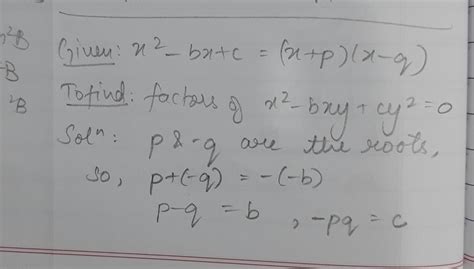 ²B
Given: x² - bx + c = (x+p)(x-q)
-B
To find: factors of x² - bxy + cy² = 0
²B
Solⁿ: p & -q are the roots,
so, p+(-q) = -(-b)
p-q = b , -pq = c